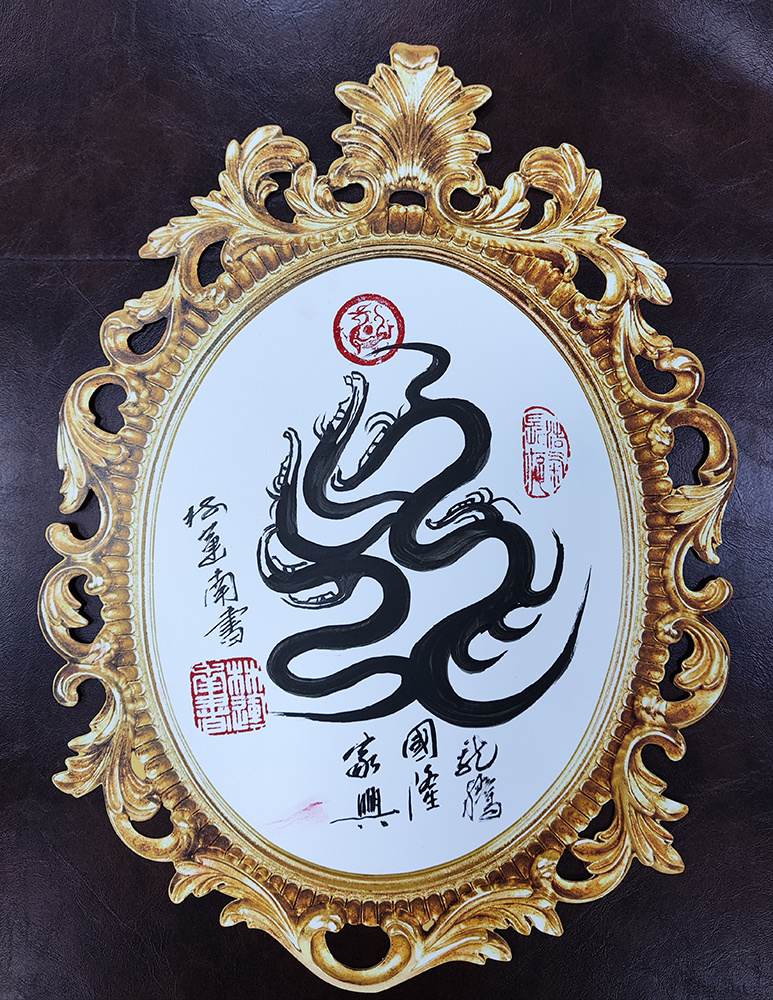 龍騰
國隆
家興
林運南書
林運
南書